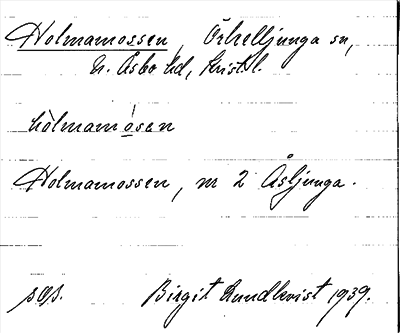 Holmamossen, Örkelljunga sn,
N. Åsbo hd, Krist. l.
hòlmamòsan
Holmamossen, nr 2 Åsljunga.
sgs. Birgit Lundkvist 1939.